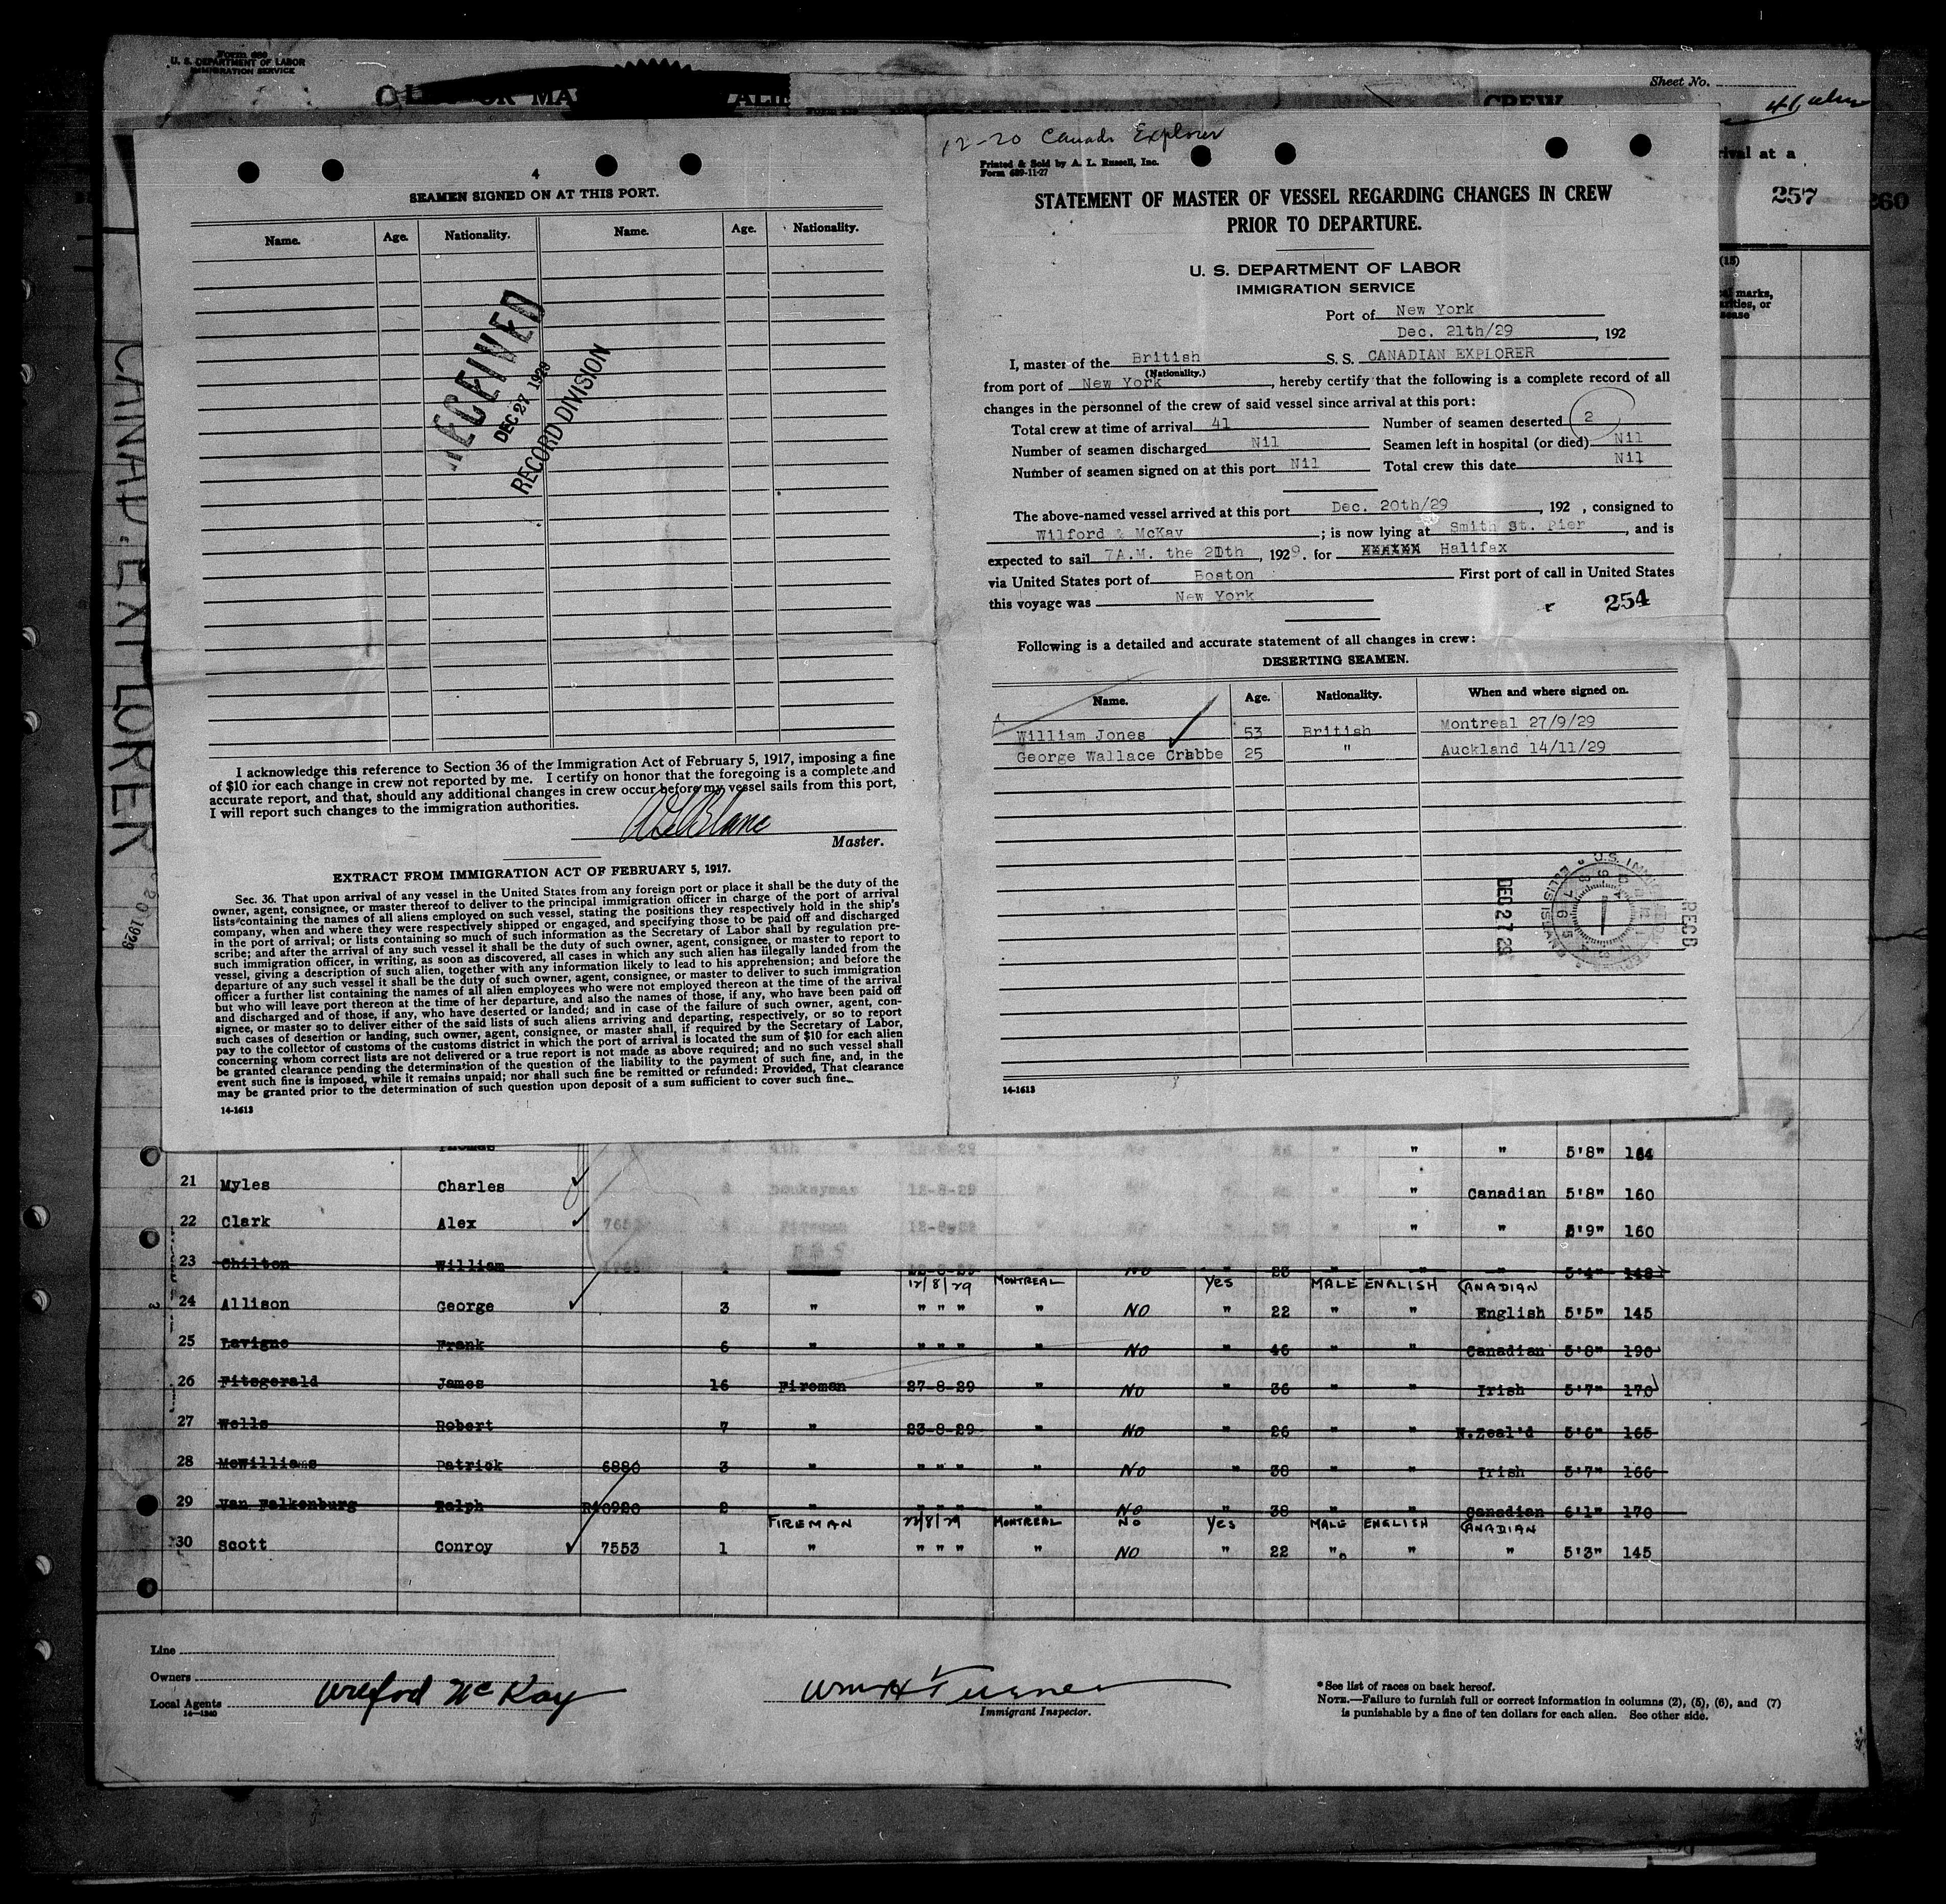 Form 680
U. S. DEPARTMENT OF LABOR
IMMIGRATION SERVICE
Sheet No.
CREW
rival at a
257
260
(15)
marks,
or
CANAD. EXPLORER
20 1929
4
SEAMEN SIGNED ON AT THIS PORT.
Name. Age. Nationality. Name. Age. Nationality.
RECEIVED
DEC 27 1929
RECORD DIVISION
I acknowledge this reference to Section 36 of the Immigration Act of February 5, 1917, imposing a fine
of $10 for each change in crew not reported by me. I certify on honor that the foregoing is a complete and
accurate report, and that, should any additional changes in crew occur before my vessel sails from this port,
I will report such changes to the immigration authorities.
Master.
EXTRACT FROM IMMIGRATION ACT OF FEBRUARY 5, 1917.
Sec. 36. That upon arrival of any vessel in the United States from any foreign port or place it shall be the duty of the
owner, agent, consignee, or master thereof to deliver to the principal immigration officer in charge of the port of arrival
lists containing the names of all aliens employed on such vessel, stating the positions they respectively hold in the ship's
company, when and where they were respectively shipped or engaged, and specifying those to be paid off and discharged
in the port of arrival; or lists containing so much of such information as the Secretary of Labor shall by regulation pre-
scribe; and after the arrival of any such vessel it shall be the duty of such owner, agent, consignee, or master to report to
such immigration officer, in writing, as soon as discovered, all cases in which any such alien has illegally landed from the
vessel, giving a description of such alien, together with any information likely to lead to his apprehension; and before the
departure of any such vessel it shall be the duty of such owner, agent, consignee, or master to deliver to such immigration
officer a further list containing the names of all alien employees who were not employed thereon at the time of the arrival
but who will leave port thereon at the time of her departure, and also the names of those, if any, who have been paid off
and discharged and of those, if any, who have deserted or landed; and in case of the failure of such owner, agent, con-
signee, or master so to deliver either of the said lists of such aliens arriving and departing, respectively, or so to report
such cases of desertion or landing, such owner, agent, consignee, or master shall, if required by the Secretary of Labor,
pay to the collector of customs of the customs district in which the port of arrival is located the sum of $10 for each alien
concerning whom correct lists are not delivered or a true report is not made as above required; and no such vessel shall
be granted clearance pending the determination of the question of the liability to the payment of such fine, and, in the
event such fine is imposed, while it remains unpaid; nor shall such fine be remitted or refunded: Provided, That clearance
may be granted prior to the determination of such question upon deposit of a sum sufficient to cover such fine.
14-1613
12-20 Canada Explorer
Printed & Sold by A. L. Russell, Inc.
Form 689-11-27
STATEMENT OF MASTER OF VESSEL REGARDING CHANGES IN CREW
PRIOR TO DEPARTURE.
U. S. DEPARTMENT OF LABOR
IMMIGRATION SERVICE
Port of New York
Dec. 21th/29, 192
I, master of the British S. S. CANADIAN EXPLORER
(Nationality.)
from port of New York, hereby certify that the following is a complete record of all
changes in the personnel of the crew of said vessel since arrival at this port:
Total crew at time of arrival 41 Number of seamen deserted 2
Number of seamen discharged Nil Seamen left in hospital (or died) Nil
Number of seamen signed on at this port Nil Total crew this date Nil
The above-named vessel arrived at this port Dec. 20th/29, 192 , consigned to
Wilford & McKay; is now lying at Smith St. Pier, and is
expected to sail 7A.M. the 21th, 1929. for Halifax
via United States port of Boston First port of call in United States
this voyage was New York
254
Following is a detailed and accurate statement of all changes in crew:
DESERTING SEAMEN.
Name. Age. Nationality. When and where signed on.
William Jones 53 British Montreal 27/9/29
George Wallace Crabbe 25 " Auckland 14/11/29
DEC 27 29
RECD
14-1613
Thomas " " 5'8" 164
21 Myles Charles Donkeyman 12-8-29 " Canadian 5'8" 160
22 Clark Alex Fireman 12-8-29 " " 5'9" 160
23 Chilton William No 5'4" 148
12/8/29 MONTREAL Yes MALE ENGLISH CANADIAN
24 Allison George 3 " " " " " NO " 22 " " English 5'5" 145
25 Lavigne Frank 6 " " " " " NO " 46 " " Canadian 5'8" 190
26 Fitzgerald James 16 Fireman 27-8-29 " NO " 36 " " Irish 5'7" 170
27 Wells Robert 7 " 23-8-29 " NO " 26 " " N.Zeal'd 5'6" 165
28 McWilliams Patrick 6880 3 " " " " " NO " 38 " " Irish 5'7" 166
29 Van Falkenburg Ralph R40920 2 " " " " " NO " 38 " " Canadian 6'1" 170
FIREMAN 22/8/29 MONTREAL No Yes MALE ENGLISH CANADIAN
30 Scott Conroy 7553 1 " " " " " NO " 22 " " " 5'3" 145
Line
Owners
Local Agents Wilford McKay
14-1240
Wm H Turner
Immigrant Inspector.
*See list of races on back hereof.
NOTE.—Failure to furnish full or correct information in columns (2), (5), (6), and (7)
is punishable by a fine of ten dollars for each alien. See other side.